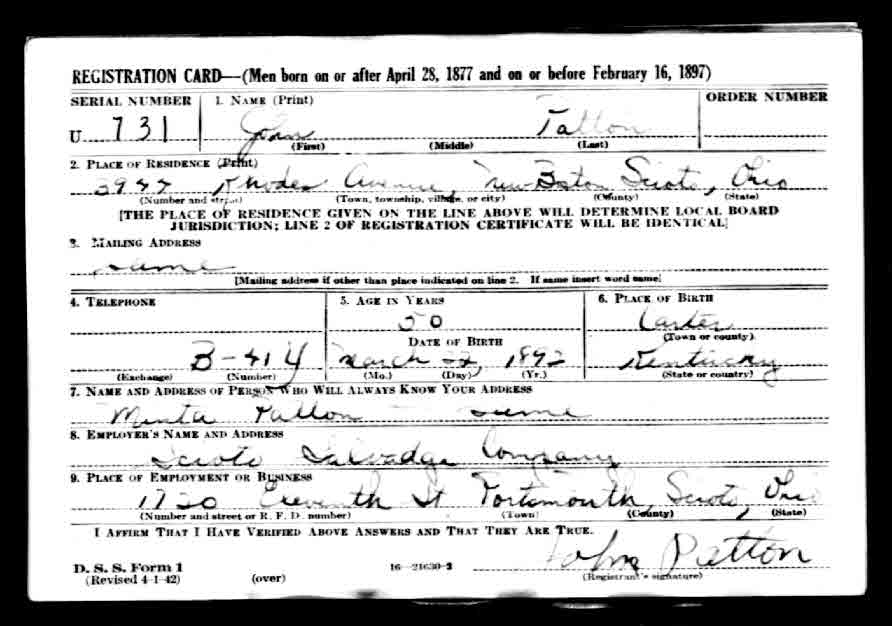 REGISTRATION CARD—(Men born on or after April 28, 1877 and on or before February 16, 1897)
SERIAL NUMBER 1. NAME (Print) ORDER NUMBER
U 731 John Patton
(First) (Middle) (Last)
2. PLACE OF RESIDENCE (Print)
Rhodes Avenue, New Boston Scioto, Ohio
(Number and street) (Town, township, village, or city) (County) (State)
[THE PLACE OF RESIDENCE GIVEN ON THE LINE ABOVE WILL DETERMINE LOCAL BOARD
JURISDICTION; LINE 2 OF REGISTRATION CERTIFICATE WILL BE IDENTICAL]
3. MAILING ADDRESS
Same
[Mailing address if other than place indicated on line 2. If same insert word same]
4. TELEPHONE 5. AGE IN YEARS 6. PLACE OF BIRTH
50 Carter
DATE OF BIRTH (Town or county)
B-414 March 22, 1892 Kentucky
(Exchange) (Number) (Mo.) (Day) (Yr.) (State or country)
7. NAME AND ADDRESS OF PERSON WHO WILL ALWAYS KNOW YOUR ADDRESS
Minta Patton same
8. EMPLOYER'S NAME AND ADDRESS
Scioto Salvadge Company
9. PLACE OF EMPLOYMENT OR BUSINESS
1720 Eleventh St Portsmouth, Scioto, Ohio
(Number and street or R. F. D. number) (Town) (County) (State)
I AFFIRM THAT I HAVE VERIFIED ABOVE ANSWERS AND THAT THEY ARE TRUE.
John Patton
D. S. S. Form 1 16—21630-2 (Registrant's signature)
(Revised 4-1-42) (over)